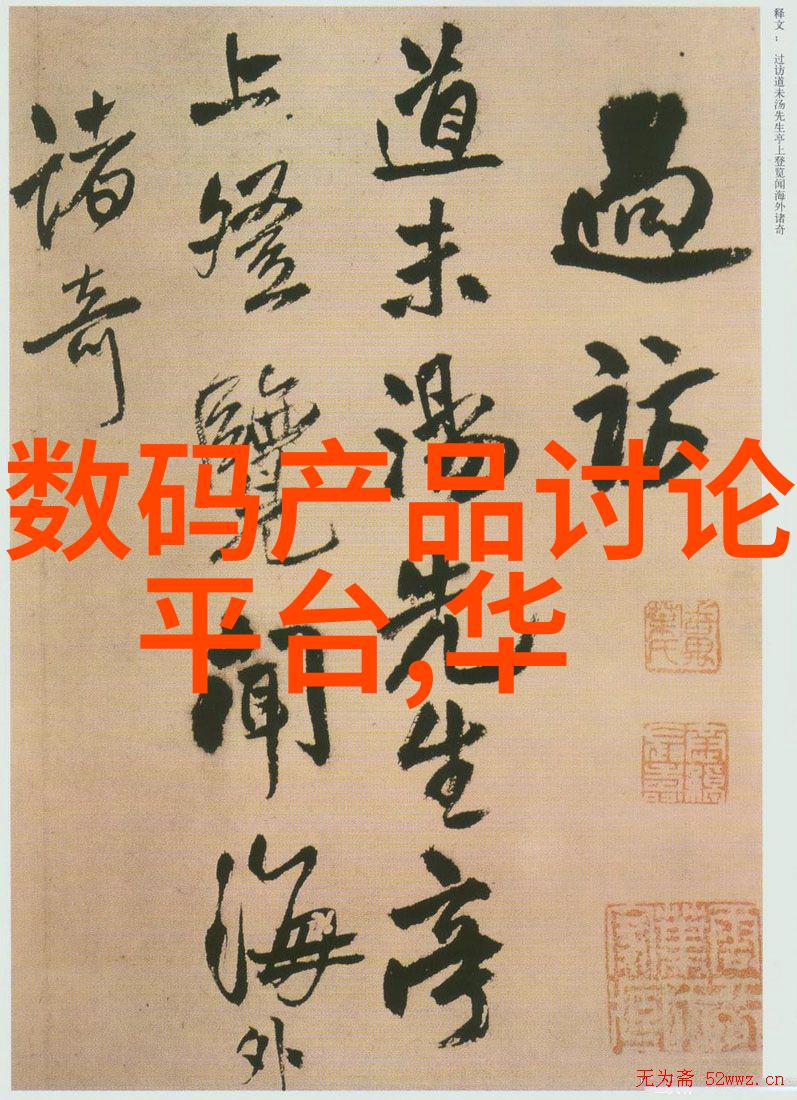 过访
道未汤先生亭
上登览闻海外
诸奇
释文： 过访道未汤先生亭上登览闻海外诸奇
数码产品讨论
平台,华
无为斋 52wwz.cn